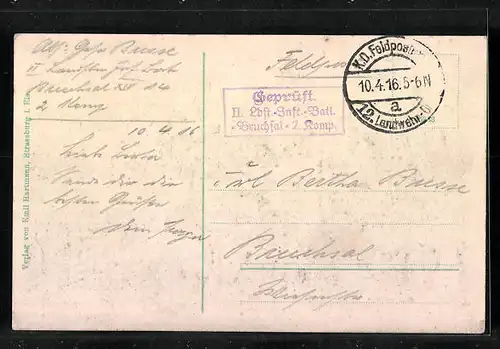 Verlag von Emil Hartmann, Strassburg i. Els.
Abs: Gefr Busse
II Landstm Inf Bat
Bruchsal XIV 14
2 Komp
Feldpost
Geprüft
II. Ldst.-Inft.-Batl.
-Bruchsal- 2. Komp.
K.D. Feldpost
10.4.16.5-6N
a
12. Landwehr-D
10 4 16
Liebe Berta
Sende dir die
besten Grüße
dein
Frl Bertha Busse
Bruchsal